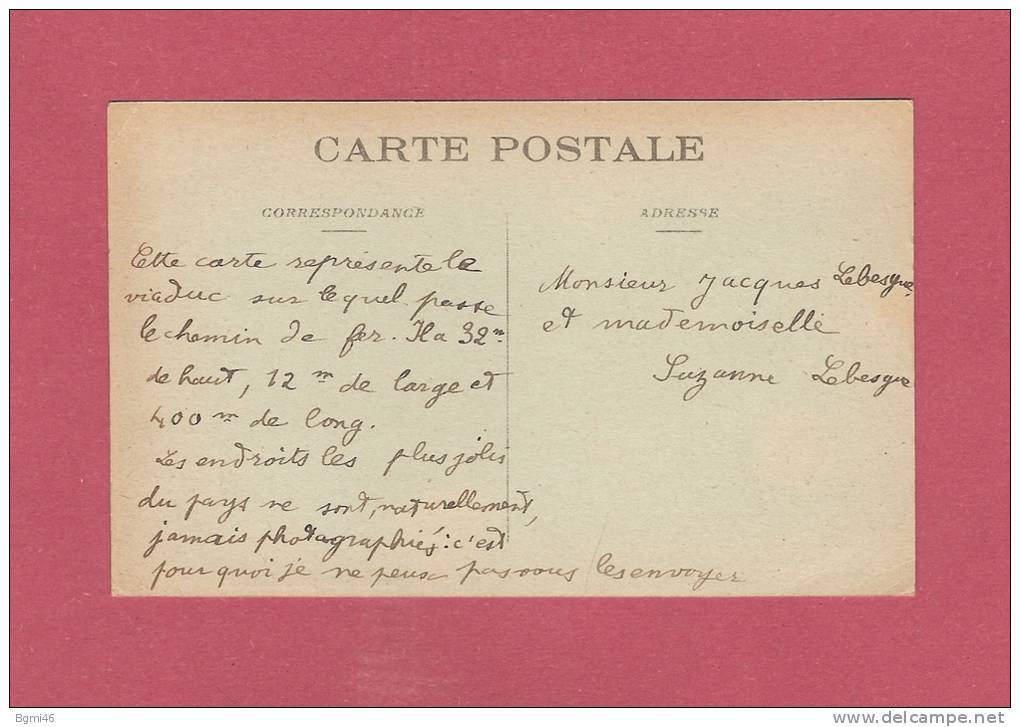 CARTE POSTALE
CORRESPONDANCE
Cette carte représente le
viaduc sur lequel passe
le chemin de fer. Il a 32 m
de haut, 12 m de large et
400 m de long.
Les endroits les plus jolis
du pays ne sont, naturellement,
jamais photographiés : c'est
pourquoi je ne peux pas vous les envoyer
ADRESSE
Monsieur Jacques Lebesgue
et mademoiselle
Suzanne Lebesgue
Bgmi46
www.delcampe.net